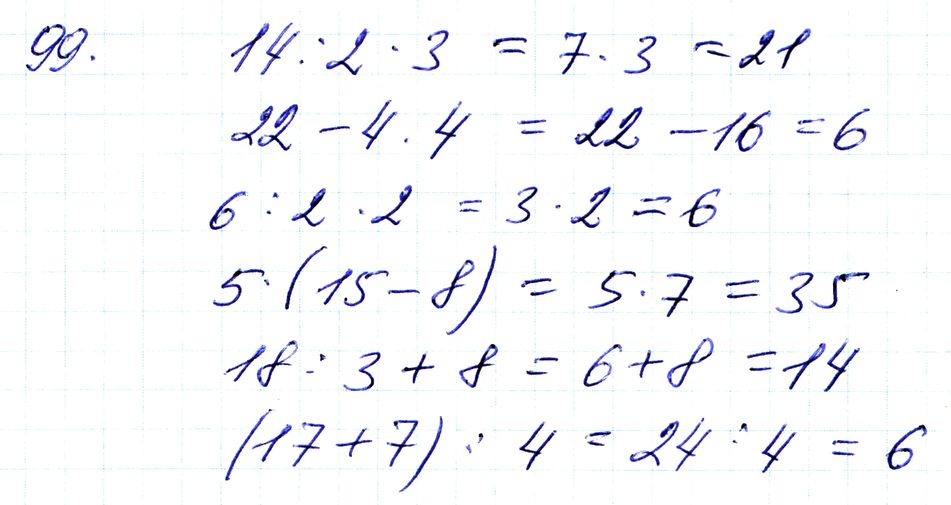 99. 14 : 2 · 3 = 7 · 3 = 21
22 - 4 · 4 = 22 - 16 = 6
6 : 2 · 2 = 3 · 2 = 6
5 · (15 - 8) = 5 · 7 = 35
18 : 3 + 8 = 6 + 8 = 14
(17 + 7) : 4 = 24 : 4 = 6